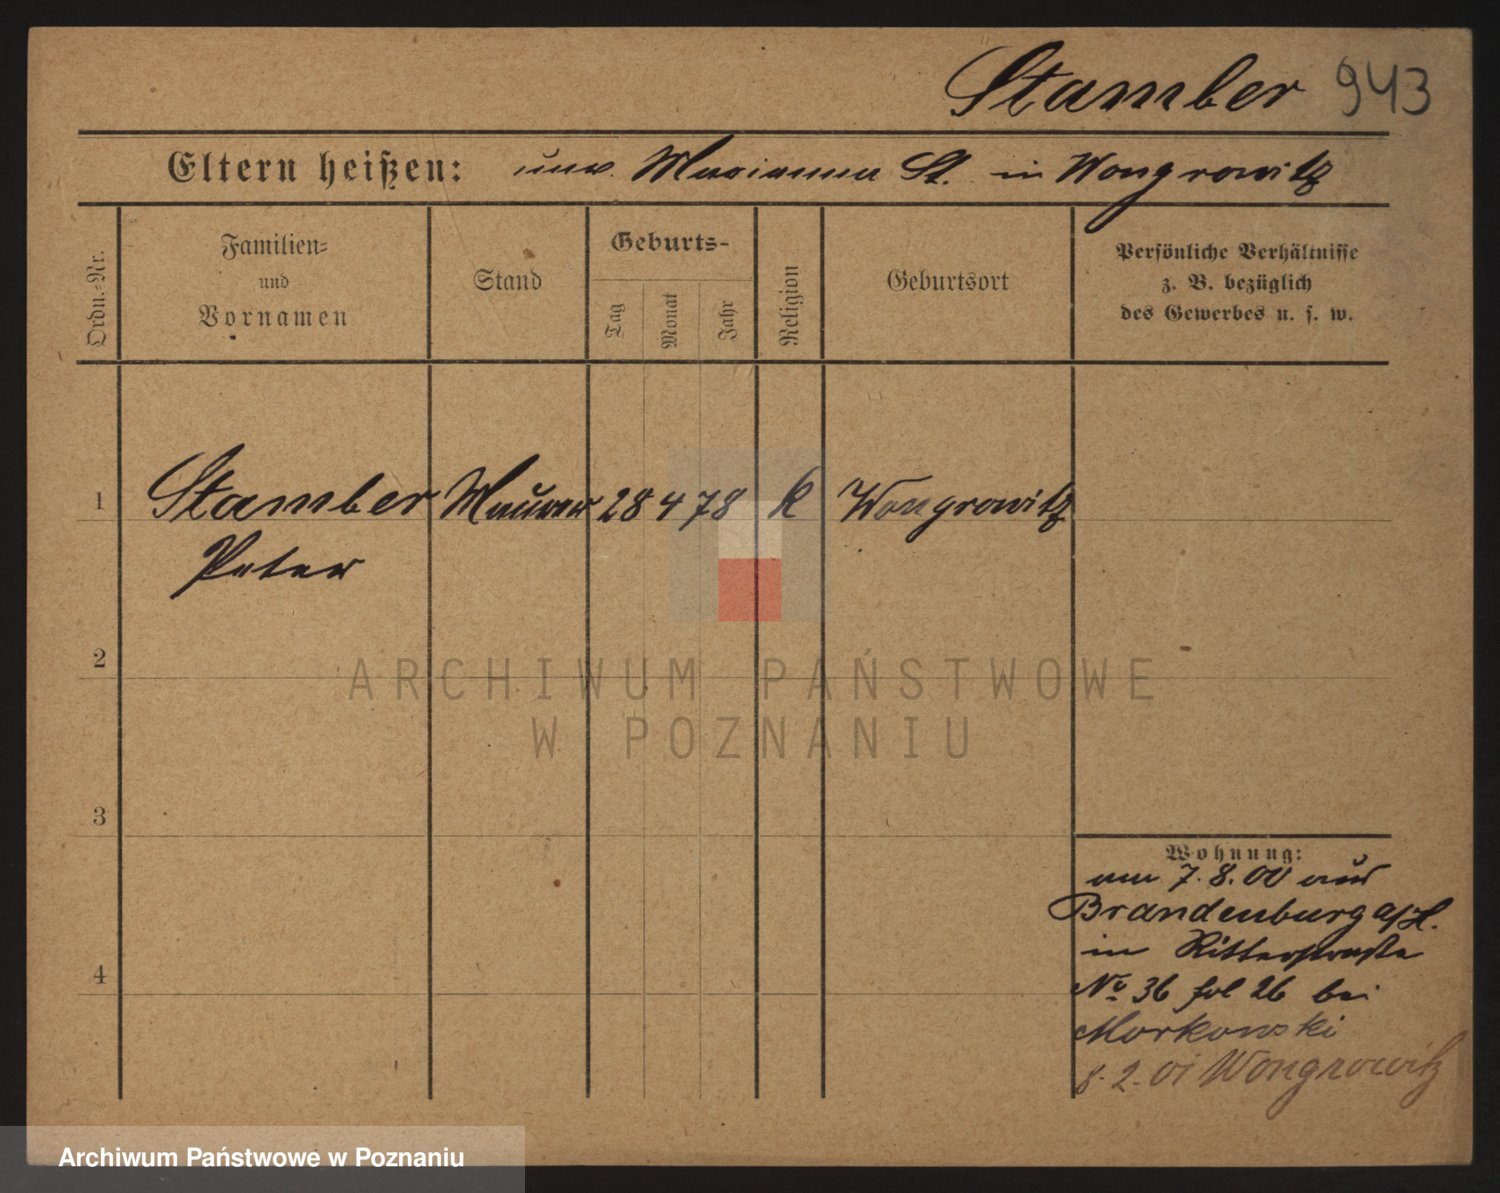 Stamber 943
Eltern heißen: unv. Marianna St. in Wongrowitz
Ordn.-Nr.
Familien-
und
Vornamen
Stand
Geburts-
Tag
Monat
Jahr
Religion
Geburtsort
Persönliche Verhältnisse
z. B. bezüglich
des Gewerbes u. s. w.
1 Stamber Maurer 28 4 78 k Wongrowitz
Peter
2
ARCHIWUM PAŃSTWOWE
W POZNANIU
3
Wohnung:
am 7.8.00 aus
Brandenburg a/H.
in Ritterstraße
4
No 36 fol 26 bei
Morkowski
8.2.01 Wongrowitz
Archiwum Państwowe w Poznaniu